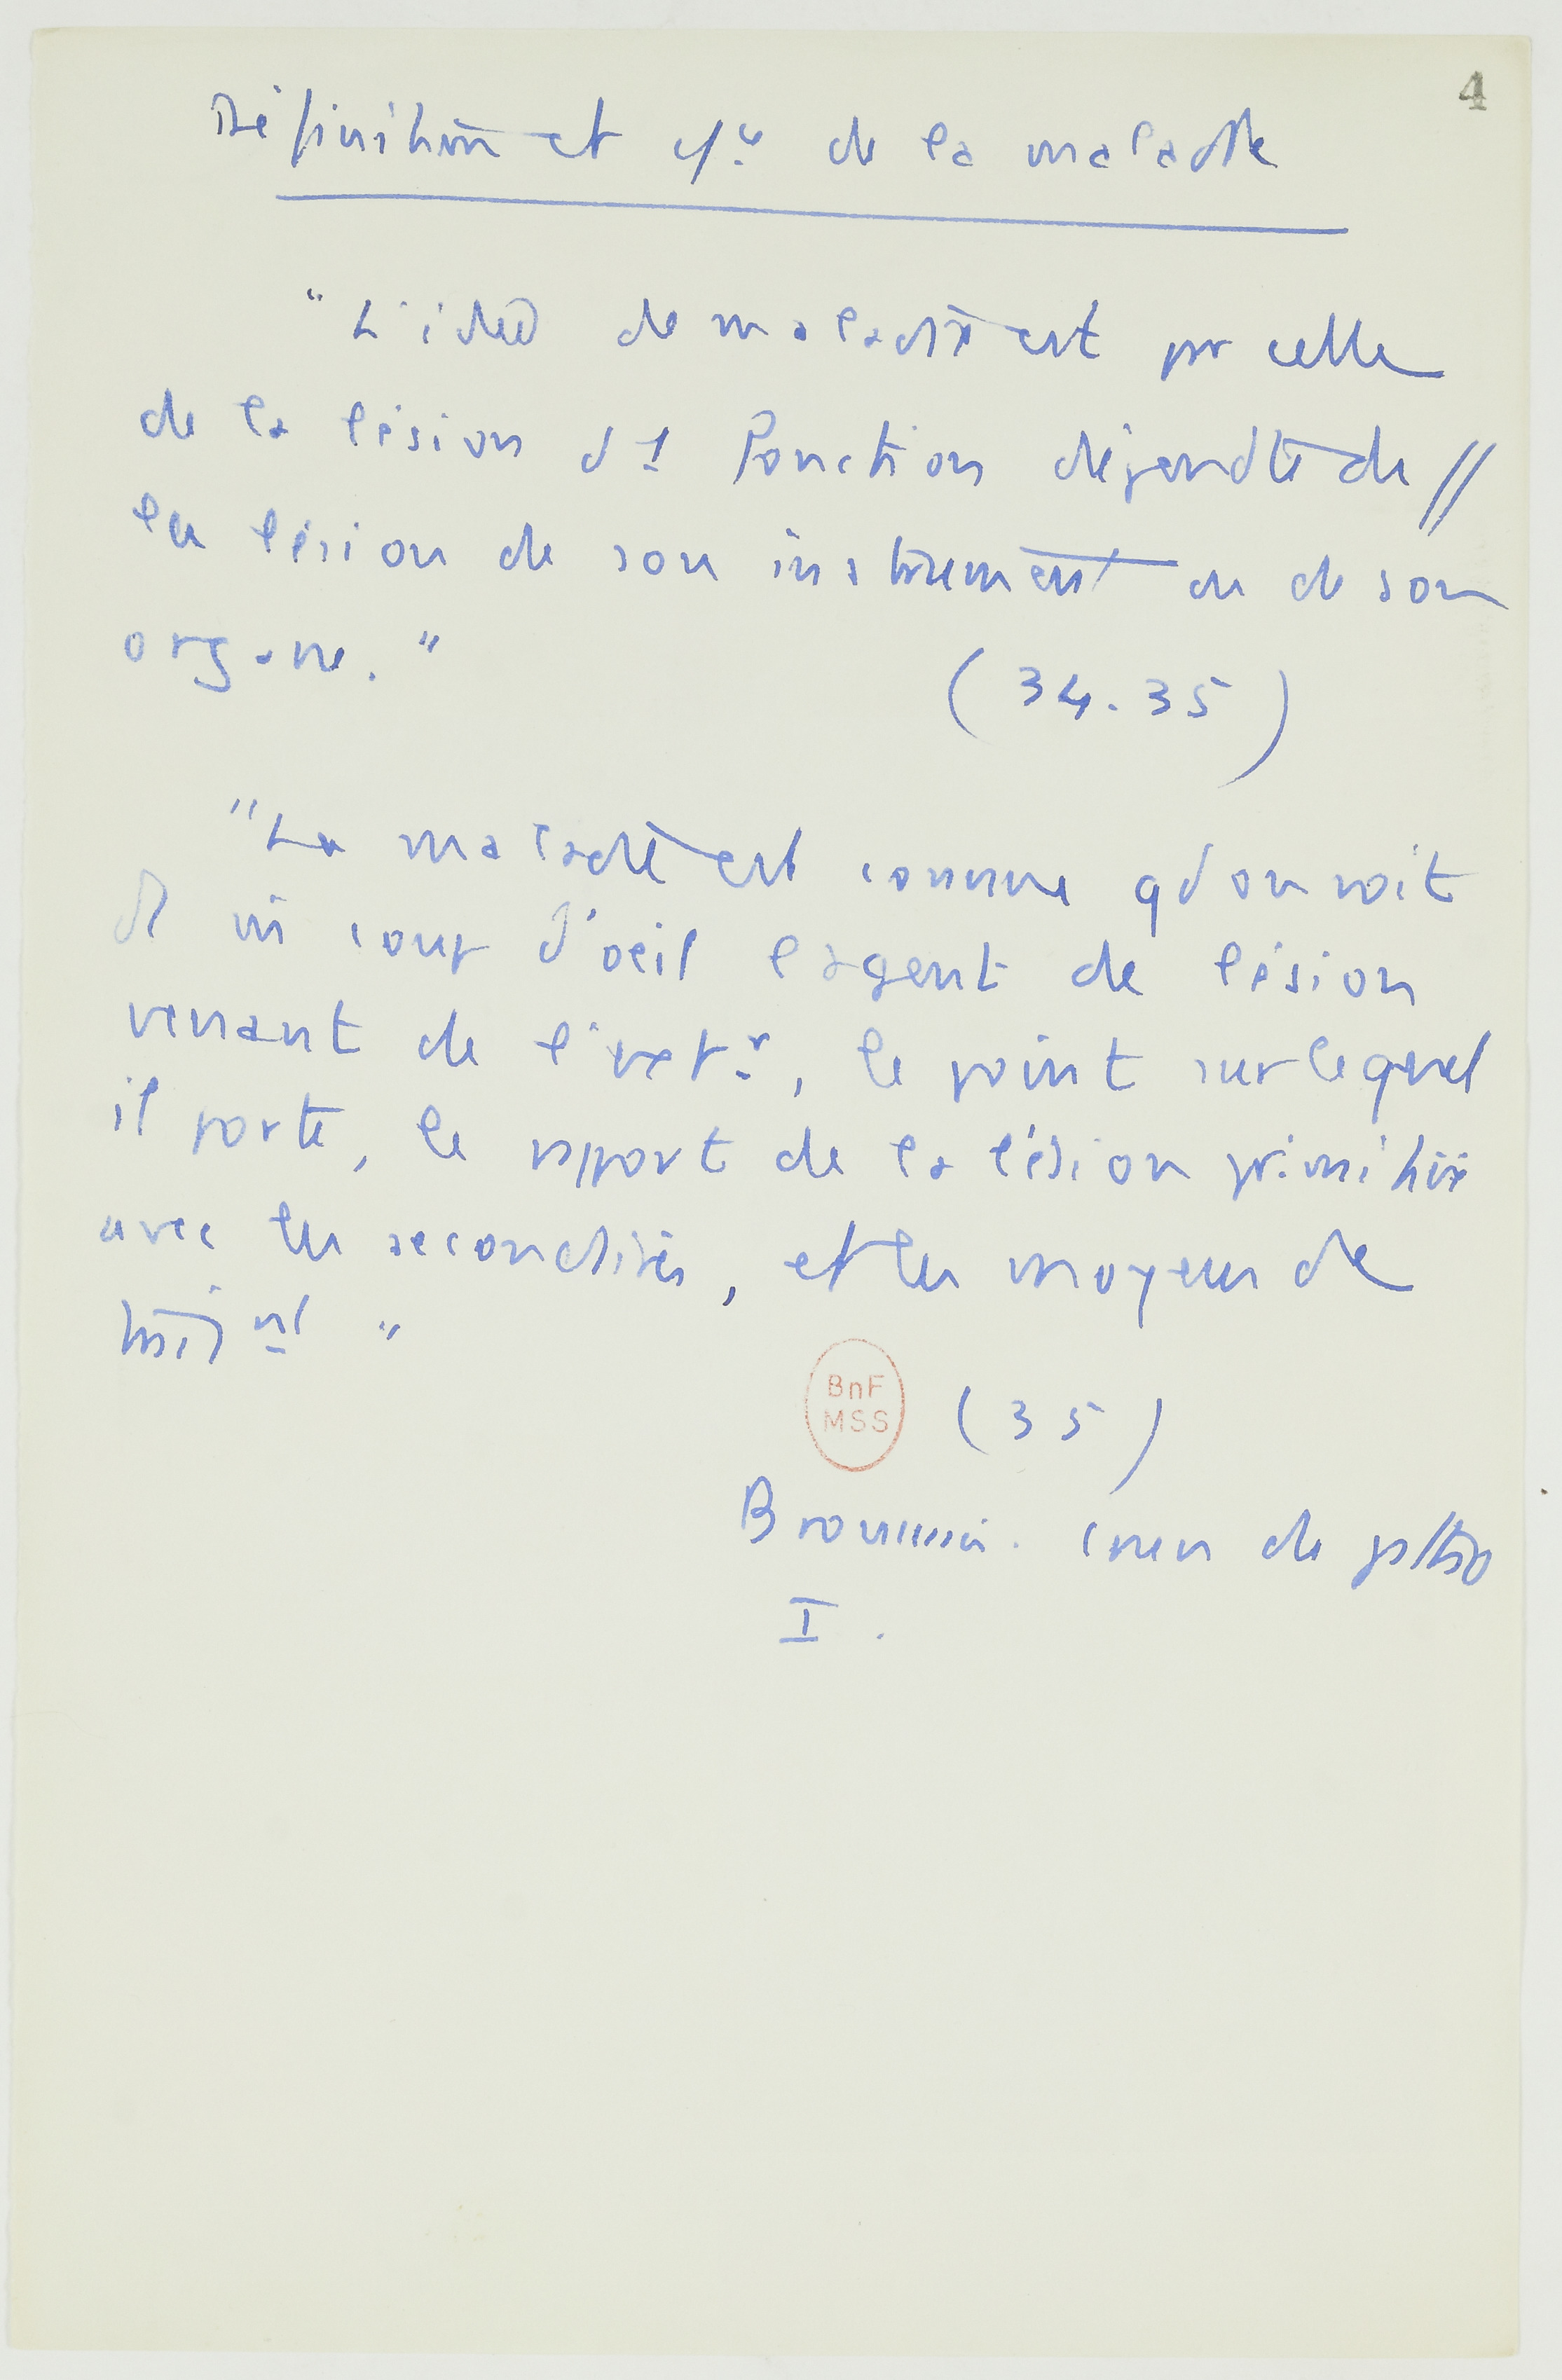 4
Définition et cʃ.ce de la maladie
"L'idée de maladie est pr celle
de la lésion d'1 fonction dépendte de //
la lésion de son instrument ou de son
organe."
(34.35)
"La maladie est connue qd on voit
d'un coup d'oeil l'agent de lésion
venant de l'extr, le point sur lequel
il porte, le rapport de la lésion primitive
avec les secondaires, et les moyens de
(35)
BnF
MSS
Broussais. de
I.